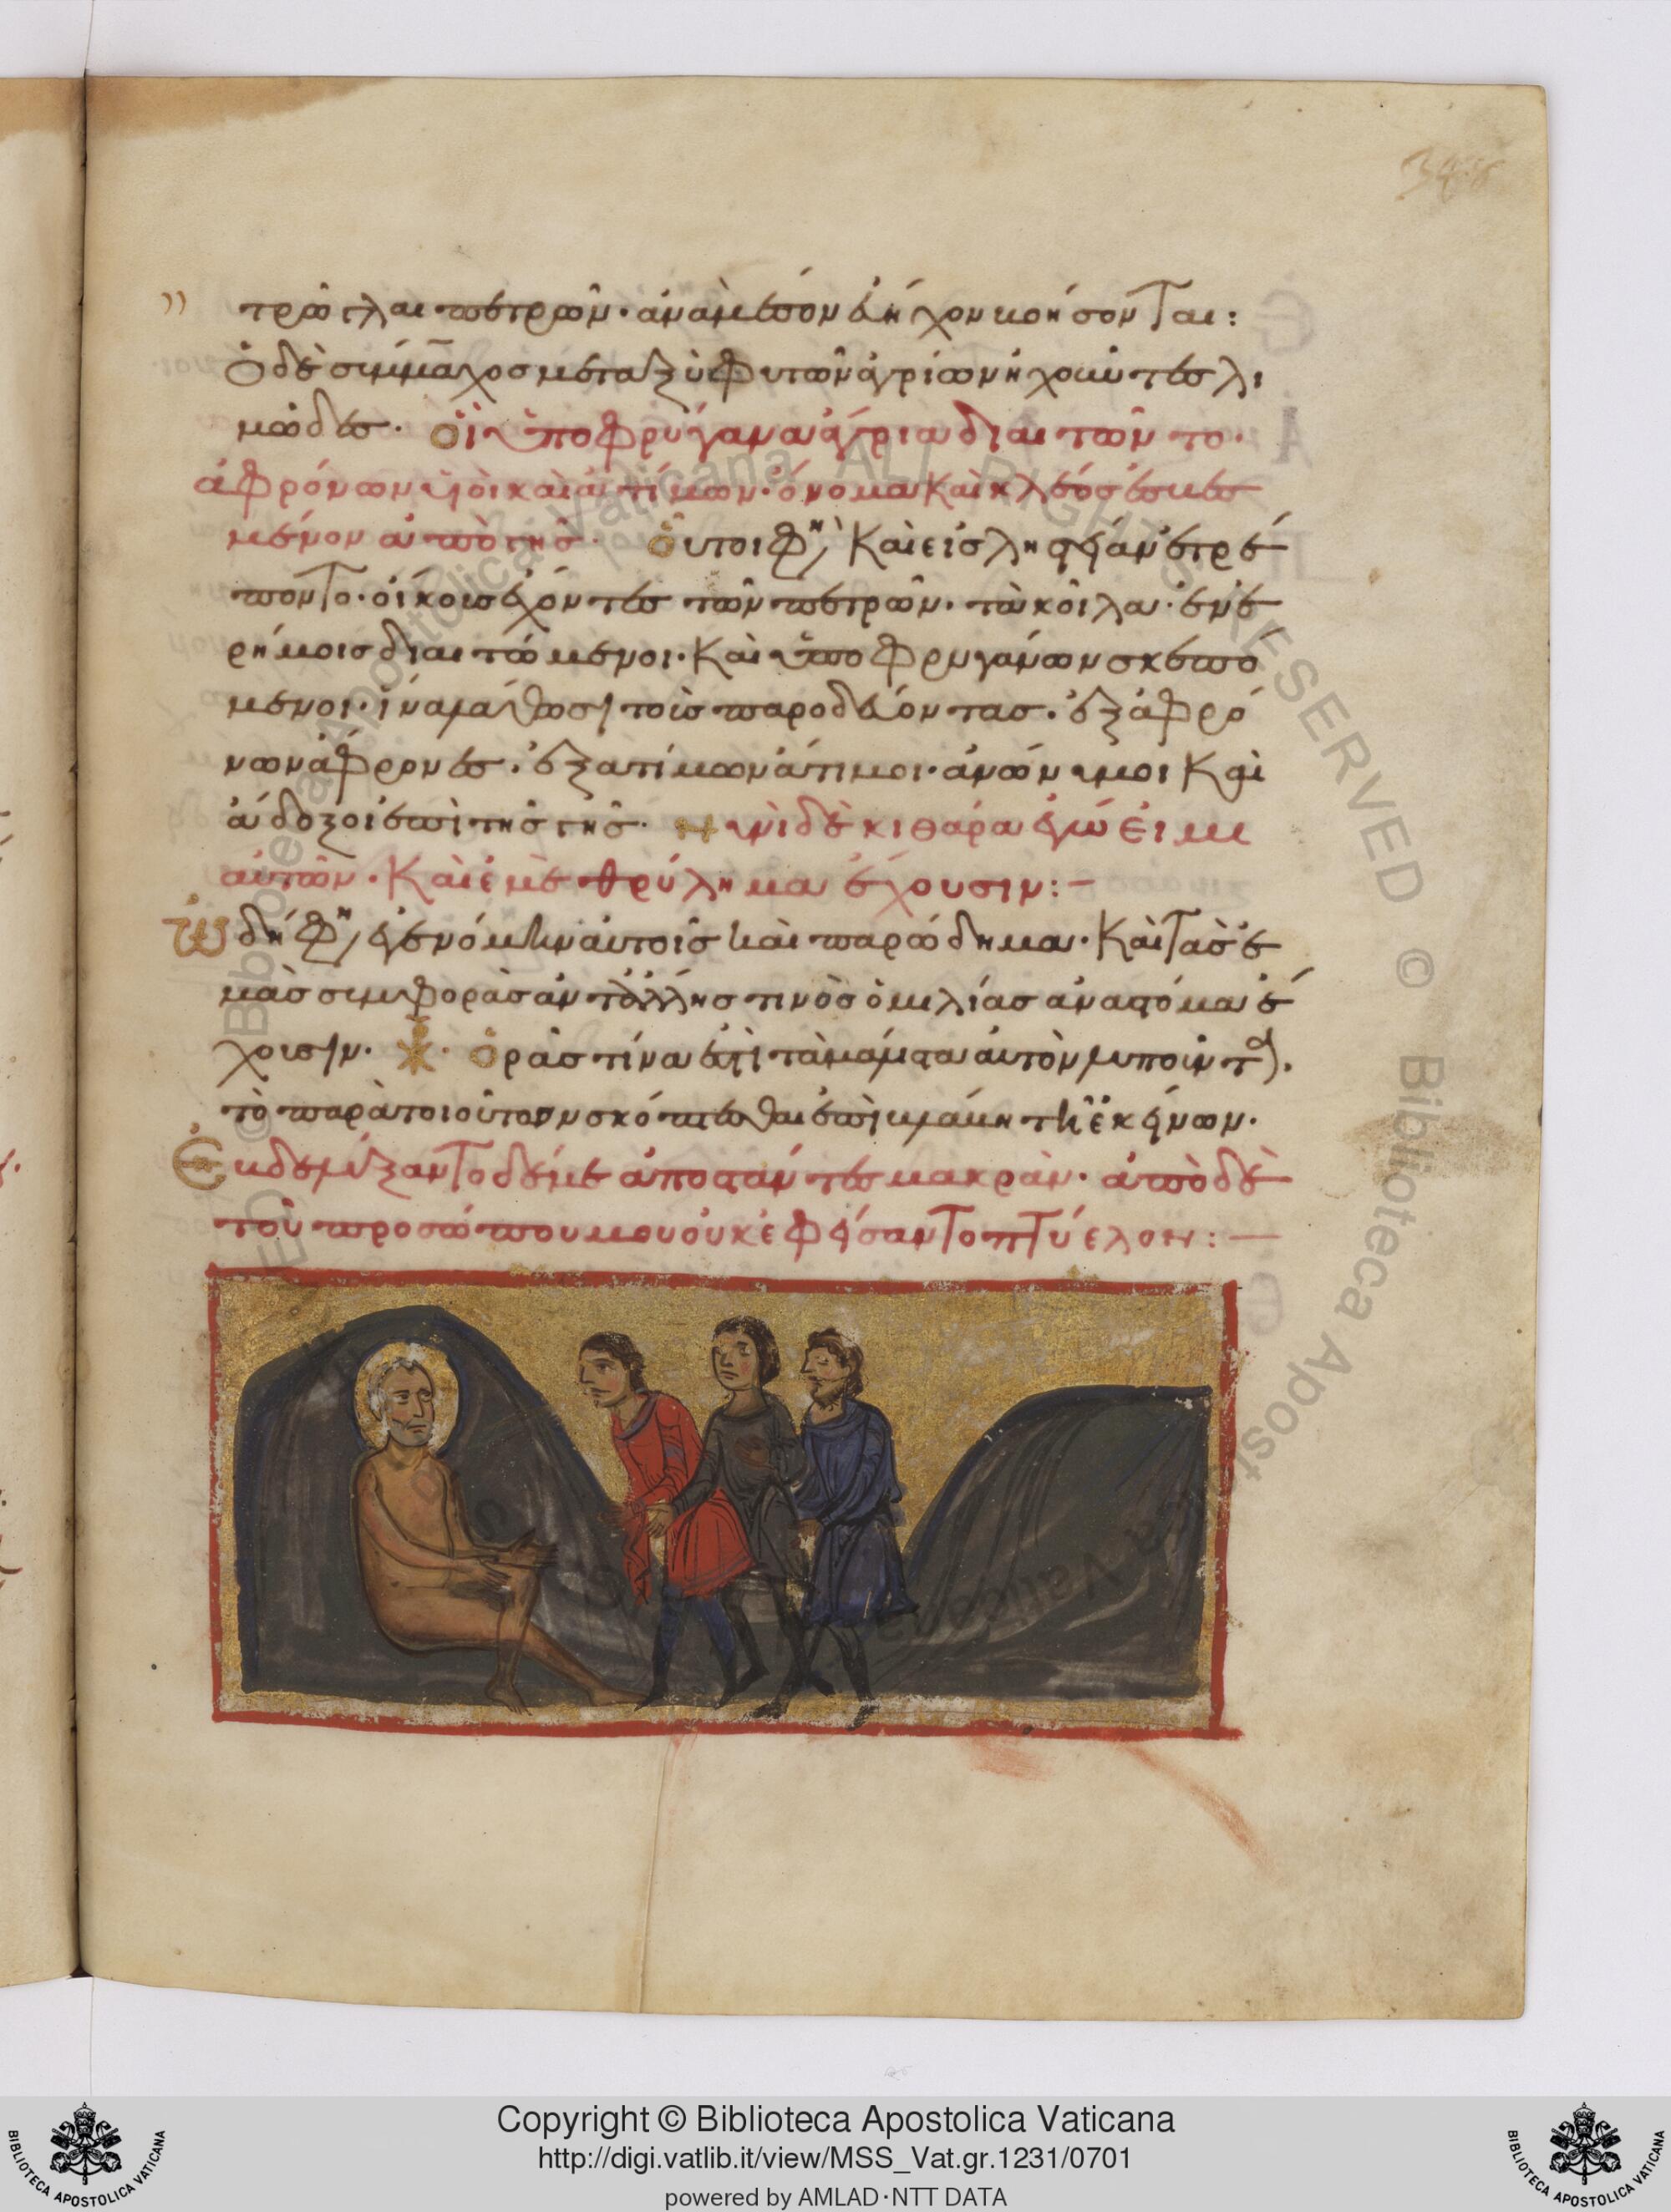 346
τρῶγλαι πετρῶν· ἀναμέσον εὐήχον βοήσονται:
Ὁ δὲ σύμμαχος μεταξὺ φυτῶν ἀγρίων ἠχοῦντες λι
μώδεις· οἳ ὑπὸ φρύγανα ἄγρια διαιτῶντο·
ἀφρόνων υἱοὶ καὶ ἀτίμων· ὄνομα καὶ κλέος ἐσβεσ
μένον ἀπὸ γῆς· οὗτοι φη καὶ εἰς ληστείαν ἐτρέ
ποντο· οἴκους ἔχοντες τῶν πετρῶν· τὰ κοῖλα· ἐν ἐ
ρήμοις διαιτώμενοι· καὶ ὑπὸ φρυγάνων σκεπό
μενοι· ἵνα μάθωσι τοὺς παροδεύοντας· ἐξ ἀφρό
νων ἄφρονες· ἐξ ατίμων ἄτιμοι· ἀνώνυμοι καὶ
ἄδοξοι ἐπὶ τῆς γῆς· Νυνὶ δὲ κιθάρα ἐγώ εἰμι
αὐτῶν· καὶ ἐμὲ θρύλημα ἔχουσιν:-
ᾠδή φη ἐγενόμην αὐτοῖς καὶ παρώδημα· καὶ τὰς ἐ
μὰς συμφορὰς ἀντ' ἄλλης τινὸς ὁμιλίας ἀνὰ στόμα ἔ
χουσιν· ὁρᾷς τίνα ἐστὶ τὰ μάλιστα αὐτὸν λυποῦντα·
τὸ παρὰ τοιούτων σκόπτεσθαι ἐπὶ βλάβῃ τῇ ἐκείνων·
Ἐβδελύξαντο δέ με ἀποστάντες μακράν· ἀπὸ δὲ
τοῦ προσώπου μου οὐκ ἐφείσαντο πτύελον:-
Copyright © Biblioteca Apostolica Vaticana
http://digi.vatlib.it/view/MSS_Vat.gr.1231/0701
powered by AMLAD·NTT DATA
BIBLIOTECA APOSTOLICA VATICANA
BIBLIOTECA APOSTOLICA VATICANA